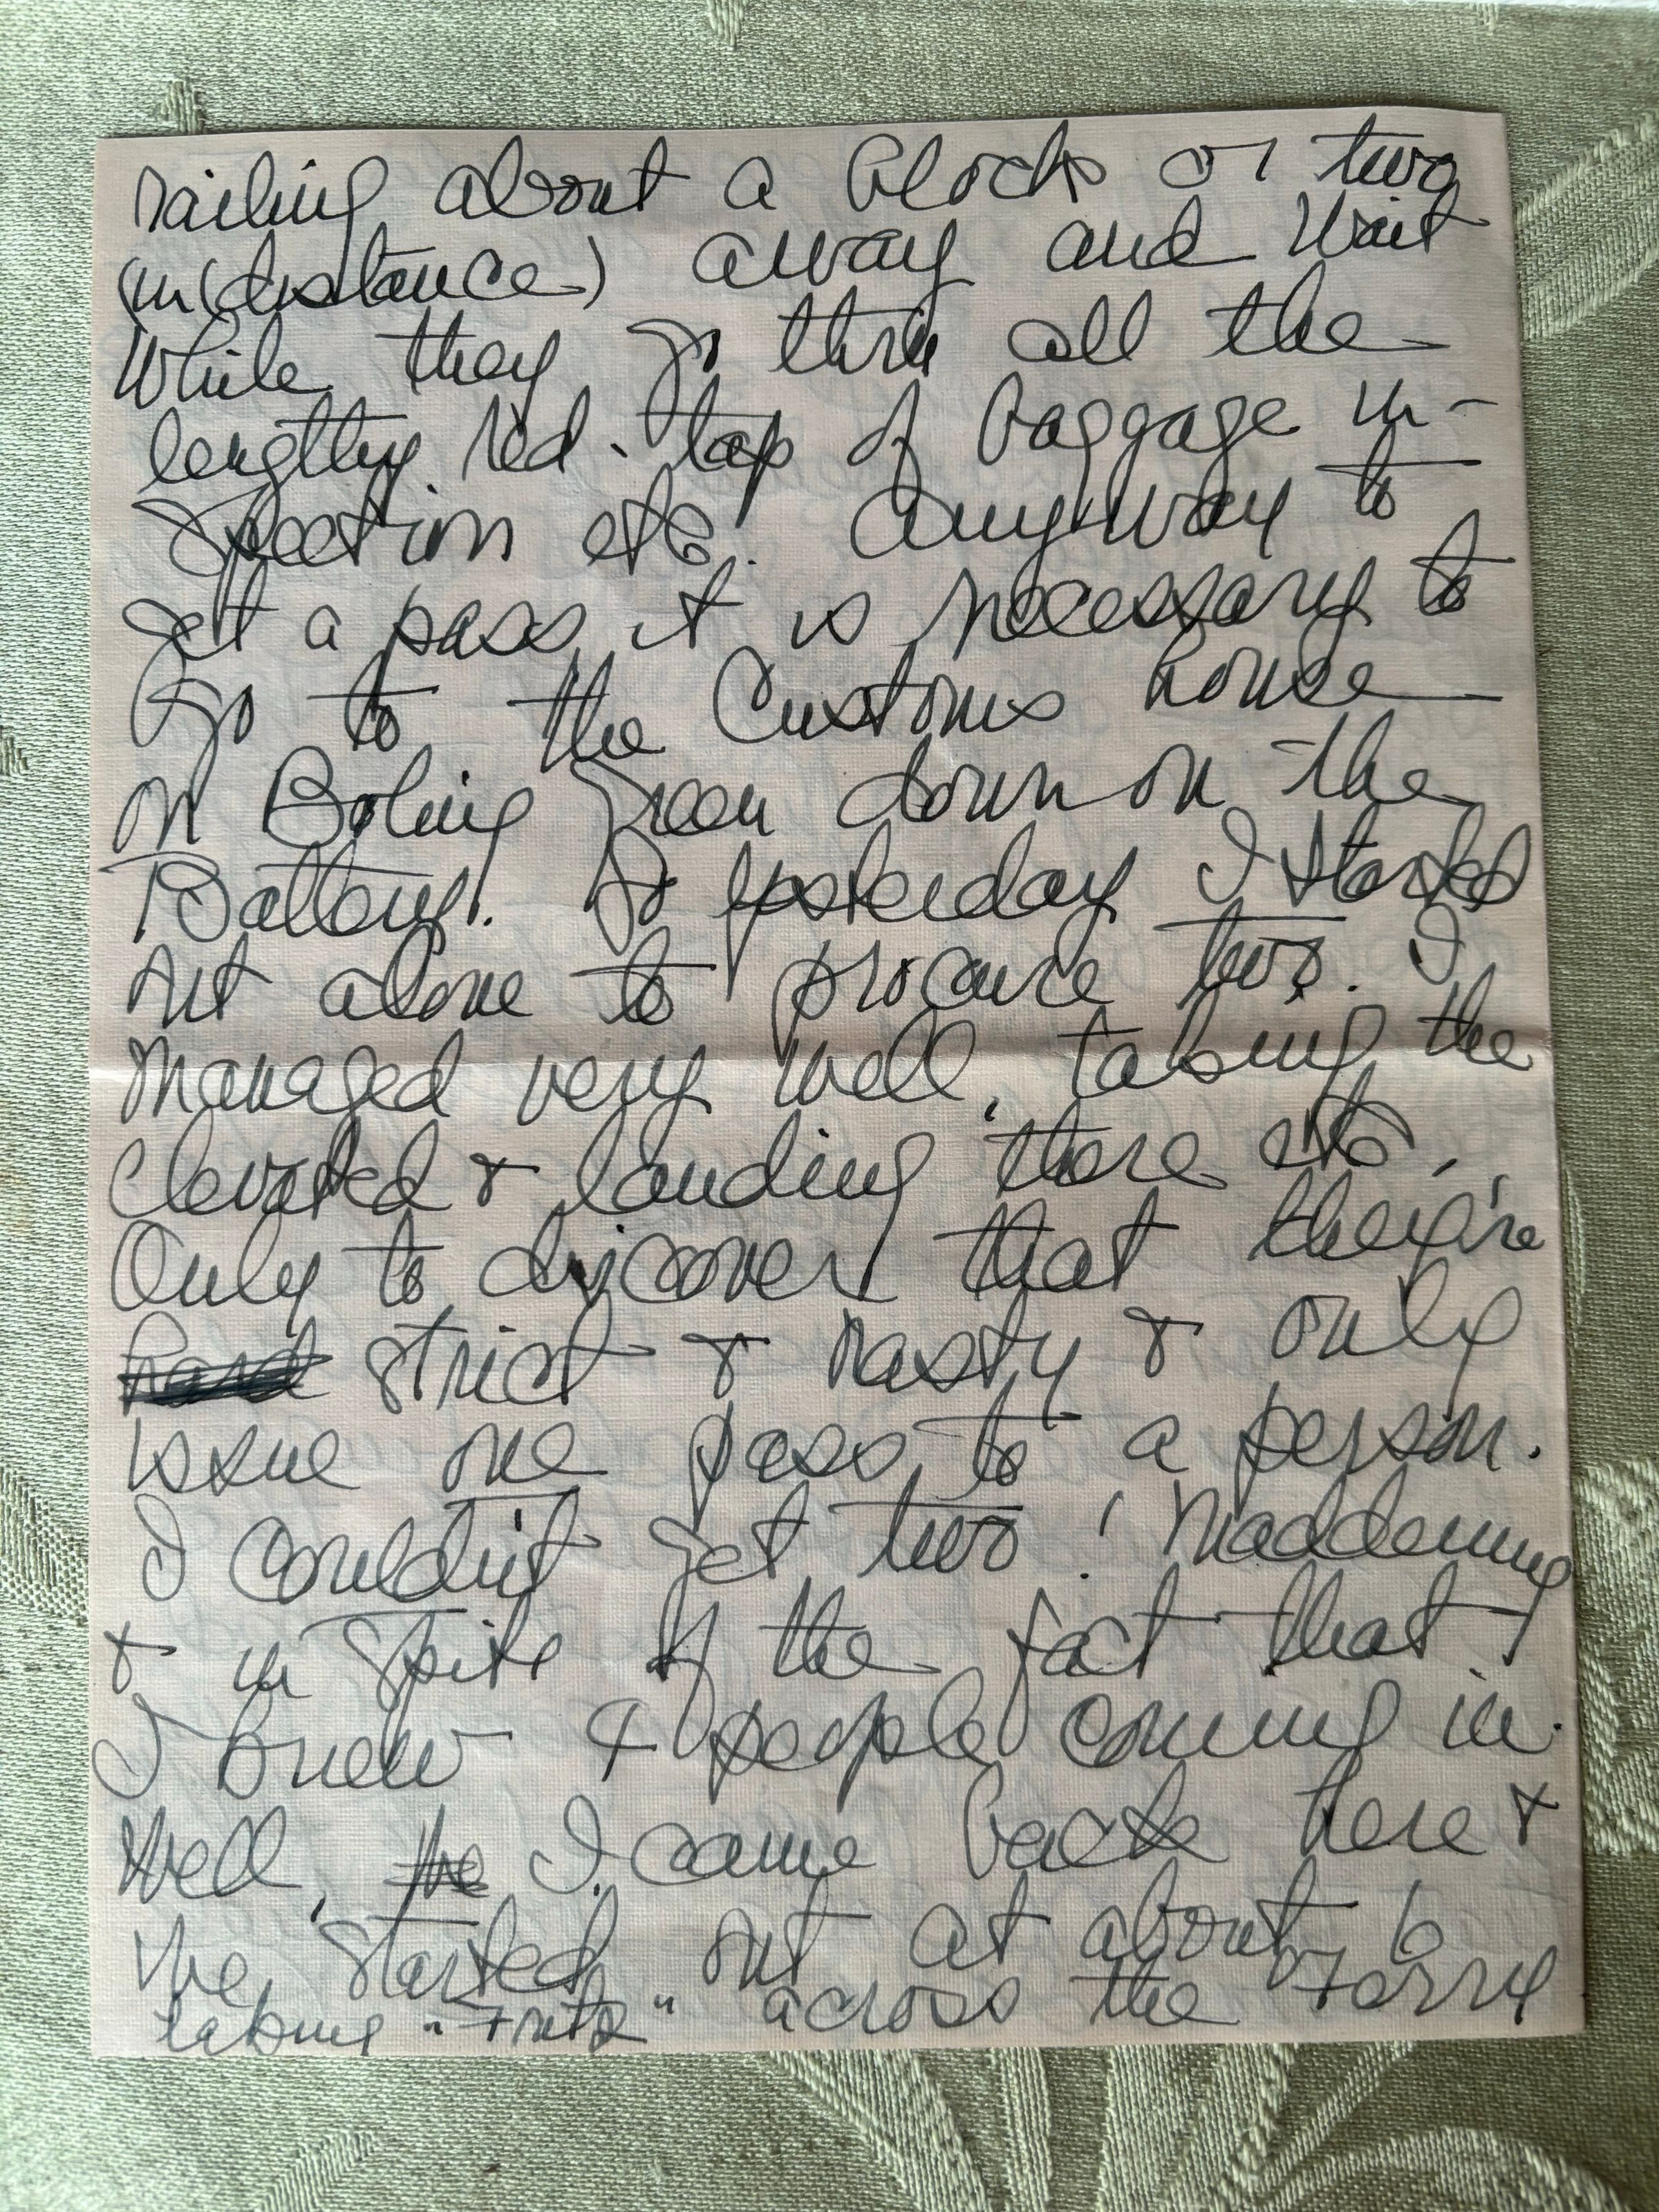 railing about a block or two
(in distance) away and wait
while they go thru all the
lengthy red-tap of baggage in-
spection etc. Anyway to
get a pass, it is necessary to
go to the Customs house
on Boling Green down on the
Battery. So yesterday I started
out alone to procure two. I
managed very well, taking the
elevated & landing there etc.,
Only to discover that they're
hard strict & nasty & only
issue one pass to a person.
I couldn't get two! Maddening
& in spite of the fact that
I knew 4 people coming in.
Well, the I came back here &
we started out at about 6
taking "Fritz" across the Ferry